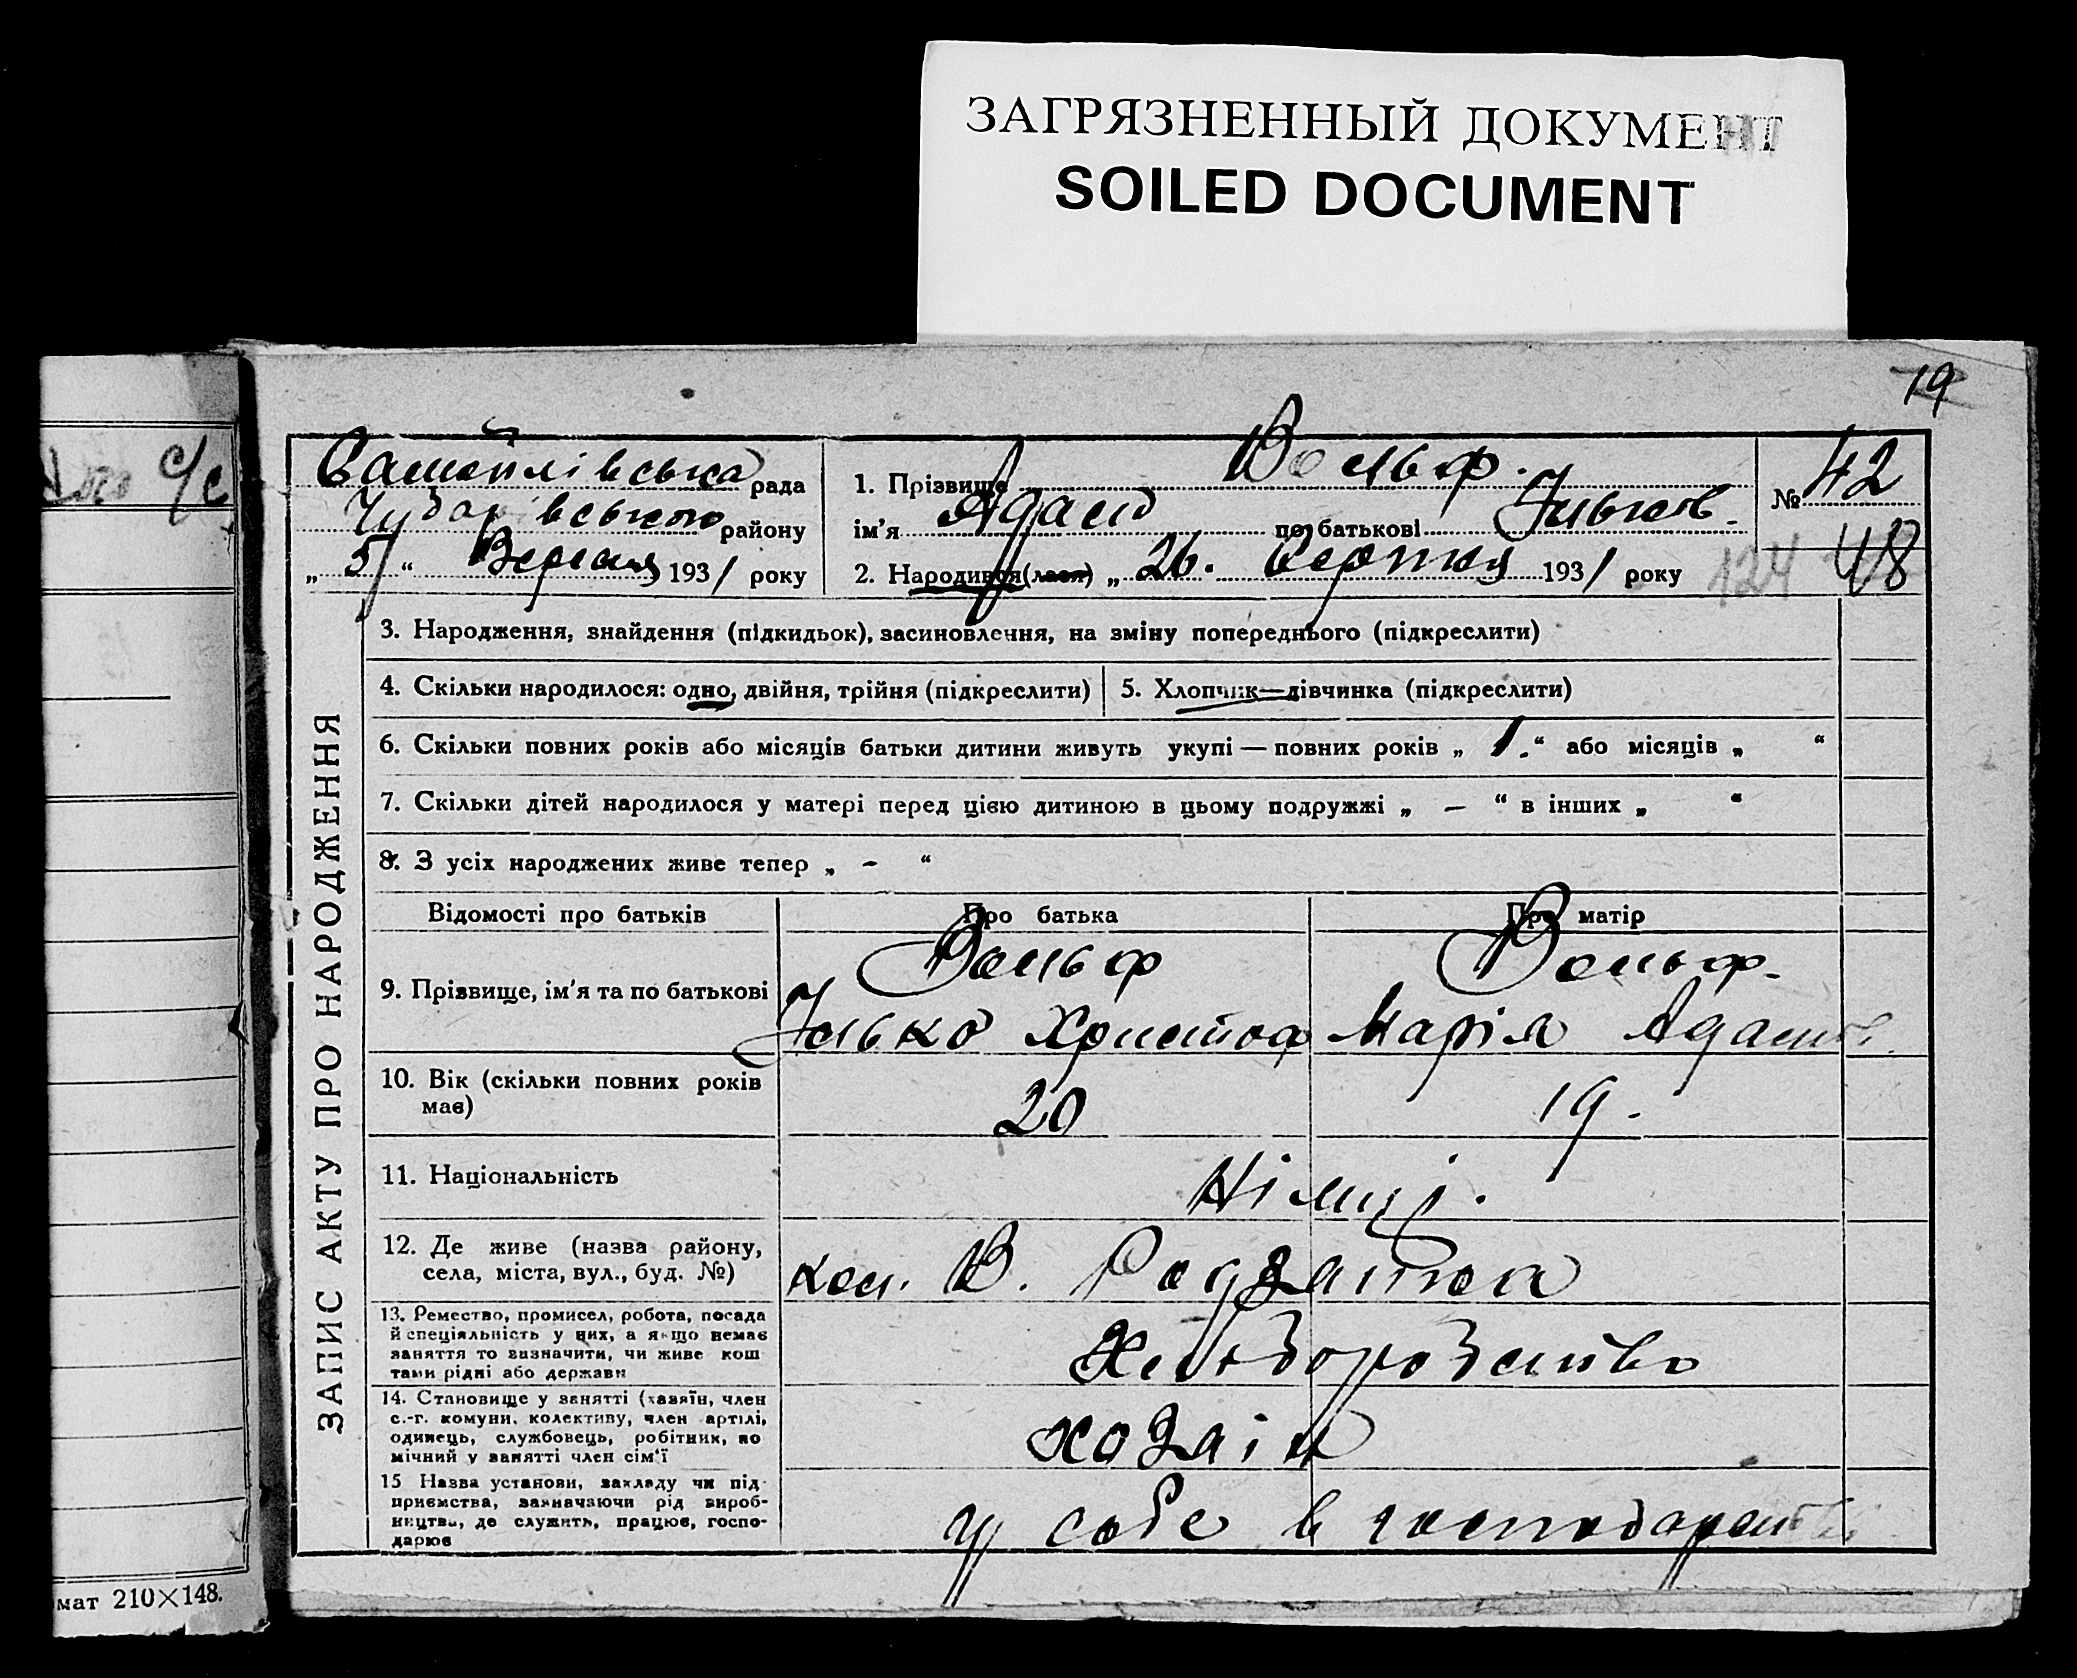 ЗАГРЯЗНЕННЫЙ ДОКУМЕНТ
SOILED DOCUMENT
19
с/с
рада
Чубарівського району
„ 5 “ Вересня 1931 року
1. Прізвище Вольф.
ім'я Адам по батькові Ільков.
2. Народився(лася) „ 26. Серпня 1931 року
№ 42
124 48
ЗАПИС АКТУ ПРО НАРОДЖЕННЯ
3. Народження, знайдення (підкидьок), засиновлення, на зміну попереднього (підкреслити)
4. Скільки народилося: одно, двійня, трійня (підкреслити)
5. Хлопчик—дівчинка (підкреслити)
6. Скільки повних років або місяців батьки дитини живуть укупі — повних років „ 1. “ або місяців „ “
7. Скільки дітей народилося у матері перед цією дитиною в цьому подружжі „ — “ в інших „ “
8. З усіх народжених живе тепер „ - “
Відомості про батьків
Про батька
Про матір
9. Прізвище, ім'я та по батькові
Вольф
Ілько Христоф
Вольф.
Марія Адамів.
10. Вік (скільки повних років
має)
20
19.
11. Національність
Німці.
12. Де живе (назва району,
села, міста, вул., буд. №)
кол. В.
13. Ремество, промисел, робота, посада
й спеціяльність у них, а якщо немає
заняття то визначити, чи живе кош
тами рідні або держави
Хліборобство
14. Становище у занятті (хазяїн, член
с.-г. комуни, колективу, член артілі,
одинець, службовець, робітник, по
мічний у занятті член сім'ї
хозяін
15 Назва установи, закладу чи під-
приємства, зазначаючи рід вироб-
ництва, де служить, працює, госпо-
дарює
у собе в господарстві
мат 210×148.